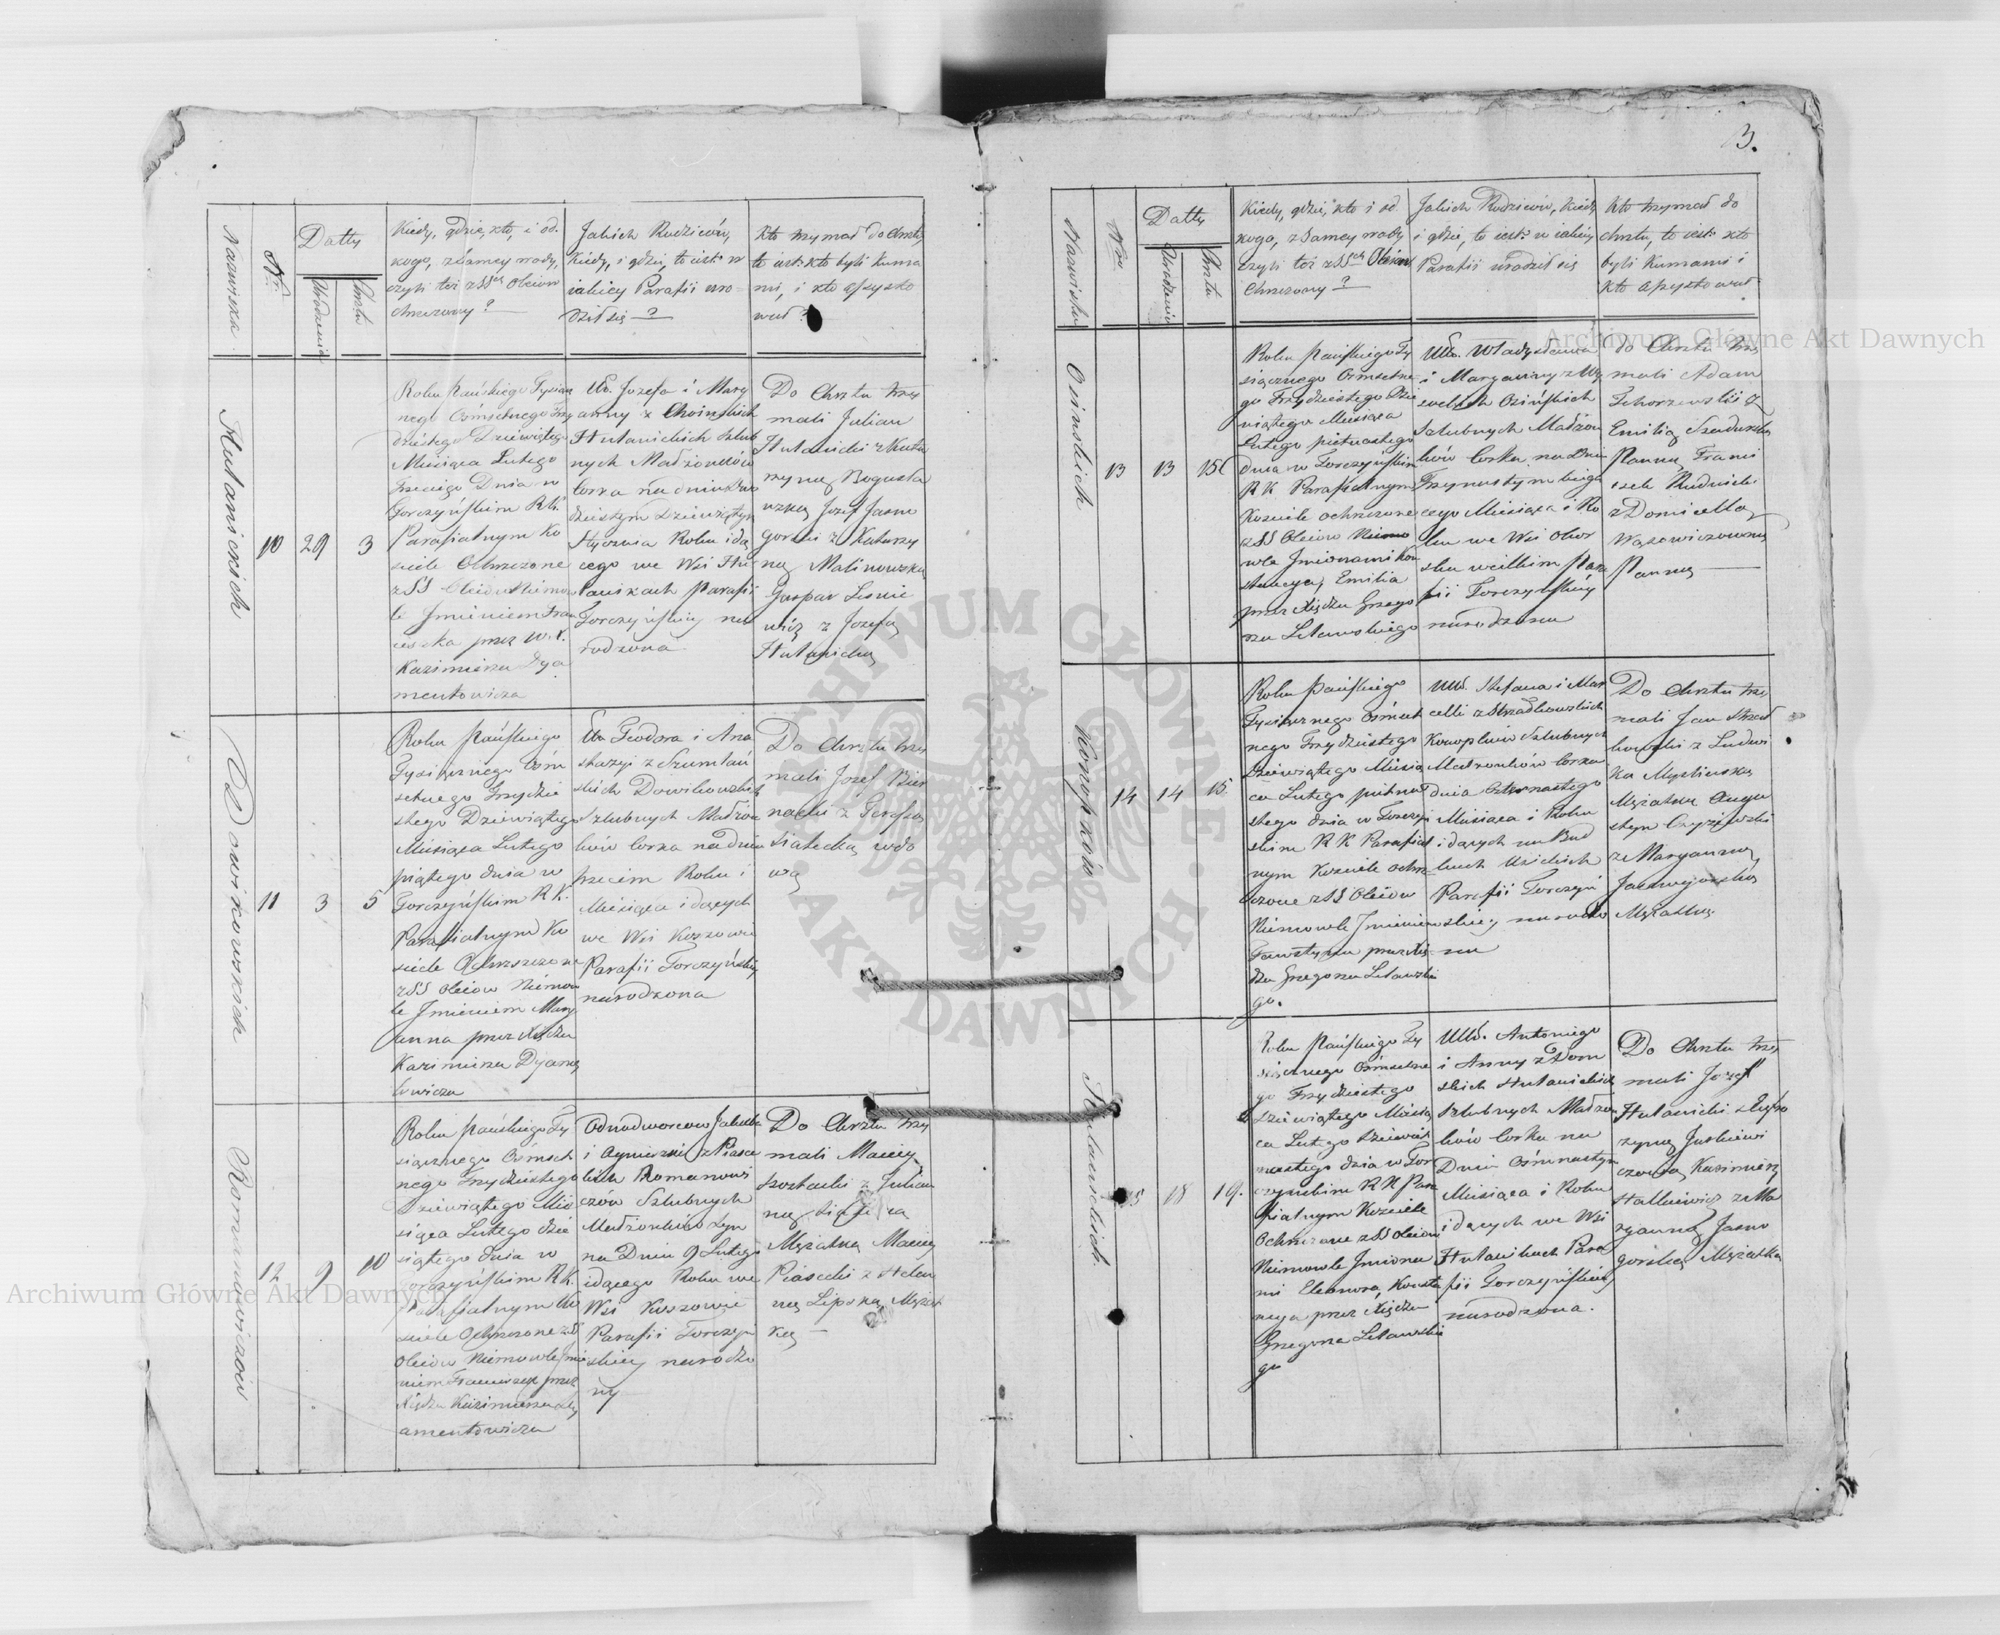 3.
Nazwiska
Nr.
Datty
Urodzenia
Chrztu
Kiedy, gdzie, kto, i od
kogo, z samey wody,
czyli też z SSch Oleiow
chrzczony?
Jakich Rodziców,
Kiedy, i gdzie, to iest w
iakiey Parafii uro-
dził się?
Kto trzymał do Chrztu
to iest: kto byli Kuma
mi, i kto assysto
wał?
Hutanickich
10
29
3
Roku Pańskiego Tysiącz
nego Ośmsetnego Trzy
dziestego Dziewiątego
Miesiąca Lutego
Trzeciego Dnia w
Torczyńskim R.K.
Parafialnym Ko
ściele Ochrzczone
z SS Oleiow Niemow
le Jmieniem Fran
ciszka przez W. X.
Kazimierza Dya
mentowicza
Ur. Jozefa i Mary
anny z Choinskich
Hutanickich szlub
nych Małżonków
Corka na dniu Dwu
dziestym Dziewiątym
Stycznia Roku idą
cego we Wsi Hu
tanikach Parafii
Torczyńskiey na
rodzona
Do Chrztu trzy
mali Julian
Hutanicki z Kata
rzyną Bogusła
wską Jozef Jasno
gorski z Katarzy
ną Malinowską
Gaspar Lisnie
wicz z Jozefą
Hutanicką
Dowikowskich
11
3
5
Roku Pańskiego
Tysiącznego Ośm
setnego Trzydzie
stego Dziewiątego
Miesiąca Lutego
piątego dnia w
Torczyńskim R.K.
Parafialnym Ko
ściele Ochrzszczone
z SS Oleiow Niemow
le Jmieniem Mary
anna przez Xiędza
Kazimierza Dyamę
towicza
Ur. Teodora i Ana
stazyi z Szumlań
skich Dowikowskich
Szlubnych Małżon
ków Corka na dniu
trzecim Roku i
Miesiąca idących
we Wsi Kozzowie
Parafii Torczyńskiey
narodzona
Do Chrztu trzy
mali Jozef Bier
nacki z Teressą
Siatecką wdo
wą
Romanowiczow
12
9
10
Roku Pańskiego Ty
siącznego Ośmset
nego Trzydziestego
Dziewiątego Mie
siąca Lutego dzie
siątego dnia w
Torczyńskim R.K.
Parafialnym Ko
ściele Ochrzczone z SS
Oleiów Niemowle Jmie
niem Franciszek przez
Xiędza Kazimierza Dy
amentowicza
Odnodworcow Jakuba
i Agnieszki z Piasec
kich Romanowi
czów Szlubnych
Małżonków Syn
na Dniu 9 Lutego
idącego Roku we
Wsi Kozzowie
Parafii Torczyń
skiey narodzo
ny
Do Chrztu trzy
mali Maciey
Szostacki z Julian
ną
Mężatką Maciey
Piasecki z Helen
ną Lipską Mężat
ką
Nazwiska
Nro
Datty
Urodzenia
Chrztu
Kiedy, gdzie, kto i od
kogo, z samey wody
czyli też z SSch Oleiow
Chrzczony?
Jakich Rodziców, kiedy
i gdzie, to iest: w iakiey
Parafii urodził się
Kto trzymał do
chrztu, to iest: kto
byli Kumami i
kto assystował
Osinskich
13
13
15
Roku Pańskiego Ty
siącznego Ośmsetne
go Trzydziestego Dzie
wiątego Miesiąca
Lutego pietnastego
dnia w Torczyńskim
R K Parafialnym
Kosciele ochrzczone
z SS Oleiow Niemo
wle Jmionami Kon
stancya, Emilia
przez Xiędza Grzego
rza Litawskiego
UUr. Władysława
i Maryanny z Wę
Osińskich
Szlubnych Małżon
ków Corka na Dniu
Trzynastym bieżą
cego Miesiąca i Ro
ku we Wsi Obor
sku wielkim Para
fii Torczyńskiey
narodzona
do Chrztu trzy
mali Adam
Tchorzewski z
Emilią Szadurską
Panną, Franci
szek Rudnicki
z Domicellą
Wąsowiczowną
Panną
Konopków
14
14
15
Roku Pańskiego
Tysiącznego Ośmset
nego Trzydziestego
Dziewiątego Miesią
ca Lutego pietna
stego dnia w Torczyń
skim R K Parafial
nym Kosciele ochrz
czone z SS Oleiów
Niemowle Jmieniem
Faustyna przez Xię
dza Grzegorza Litawskie
go.
UUr. Stefana i Mar
celli z Strzałkowskich
Konopków Szlubnych
Małżonków Corka
dnia Czternastego
Miesiąca i Roku
idących na Bud
kach Usickich
Parafii Torczyń
skiey narodzo
na
Do Chrztu trzy
mali Jan Strzał
kowski z Ludwi
ką Myśliwską
Mężatką Augu
styn
z Maryanną
Mężatką.
Hutanickich.
15
18
19.
Roku Pańskiego Ty
siącznego Ośmsetne
go Trzydziestego
Dziewiątego Miesią
ca Lutego Dziewięt
nastego dnia w Tor
czyńskim R K Para
fialnym Kosciele
Ochrzczone z SS Oleiów
Niemowle Jmiona
mi Eleonora, Konsta
ncya przez Xiędza
Grzegorza Litawskie
go
UUr. Antoniego
i Anny z Dom
skich Hutanickich
Szlubnych Małżon
ków Corka na
Dniu Ośmnastym
Miesiąca i Roku
idących we Wsi
Hutanikach Para
fii Torczyńskiey
narodzona.
Do Chrztu trzy
mali Jozef
Hutanicki z Kata
rzyną Juskiewi
czową, Kazimierz
Stallniewicz z Ma
ryanną Jasno
gorską Mężatką
ARCHIWUM GŁÓWNE AKT DAWNYCH
Archiwum Główne Akt Dawnych
Archiwum Główne Akt Dawnych